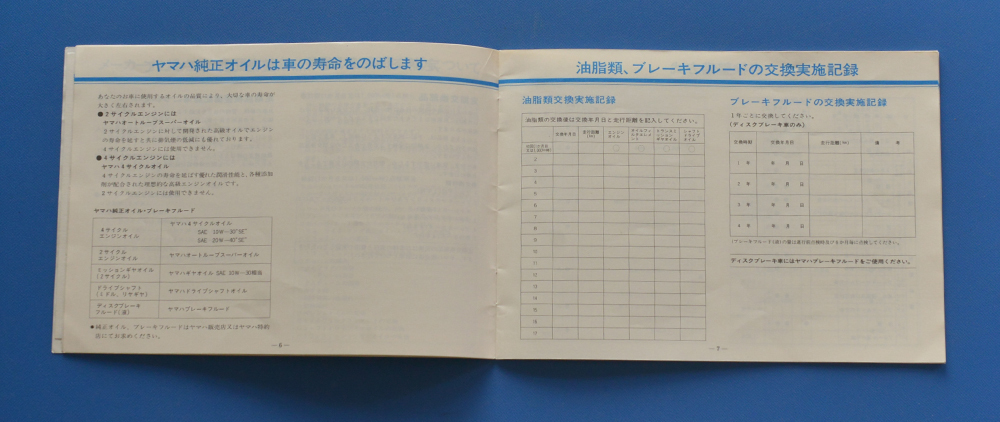 ヤマハ純正オイルは車の寿命をのばします
あなたのお車に使用するオイルの品質により、大切な車の寿命が
大きく左右されます。
●2サイクルエンジンには
ヤマハオートルーブスーパーオイル
2サイクルエンジンに対して開発された高級オイルでエンジン
の寿命を延すと共に排気煙の低減にも優れております。
4サイクルエンジンには使用できません。
●4サイクルエンジンには
ヤマハ4サイクルオイル
4サイクルエンジンの寿命を延ばす優れた潤滑性能と、各種添加
剤が配合された理想的な高級エンジンオイルです。
2サイクルエンジンには使用できません。
ヤマハ純正オイル・ブレーキフルード
4サイクル
エンジンオイル
ヤマハ4サイクルオイル
SAE 10W-30"SE"
SAE 20W-40"SE"
2サイクル
エンジンオイル
ヤマハオートルーブスーパーオイル
ミッションギヤオイル
(2サイクル)
ヤマハギヤオイル SAE 10W-30相当
ドライブシャフト
(ミドル、リヤギヤ)
ヤマハドライブシャフトオイル
ディスクブレーキ
フルード(液)
ヤマハブレーキフルード
●純正オイル、ブレーキフルードはヤマハ販売店又はヤマハ特約
店にてお求めください。
―6―
油脂類、ブレーキフルードの交換実施記録
油脂類交換実施記録
油脂類の交換後は交換年月日と走行距離を記入してください。
交換年月日
走行距離
(km)
エンジン
オイル
2
3
4
5
6
7
8
9
10
11
12
13
14
15
16
17
ブレーキフルードの交換実施記録
1年ごとに交換してください。
(ディスクブレーキ車のみ)
交換時期 交換年月日 走行距離(km) 備考
1年 年 月 日
2年 年 月 日
3年 年 月 日
4年 年 月 日
ディスクブレーキ車にはヤマハブレーキフルードをご使用ください。
―7―